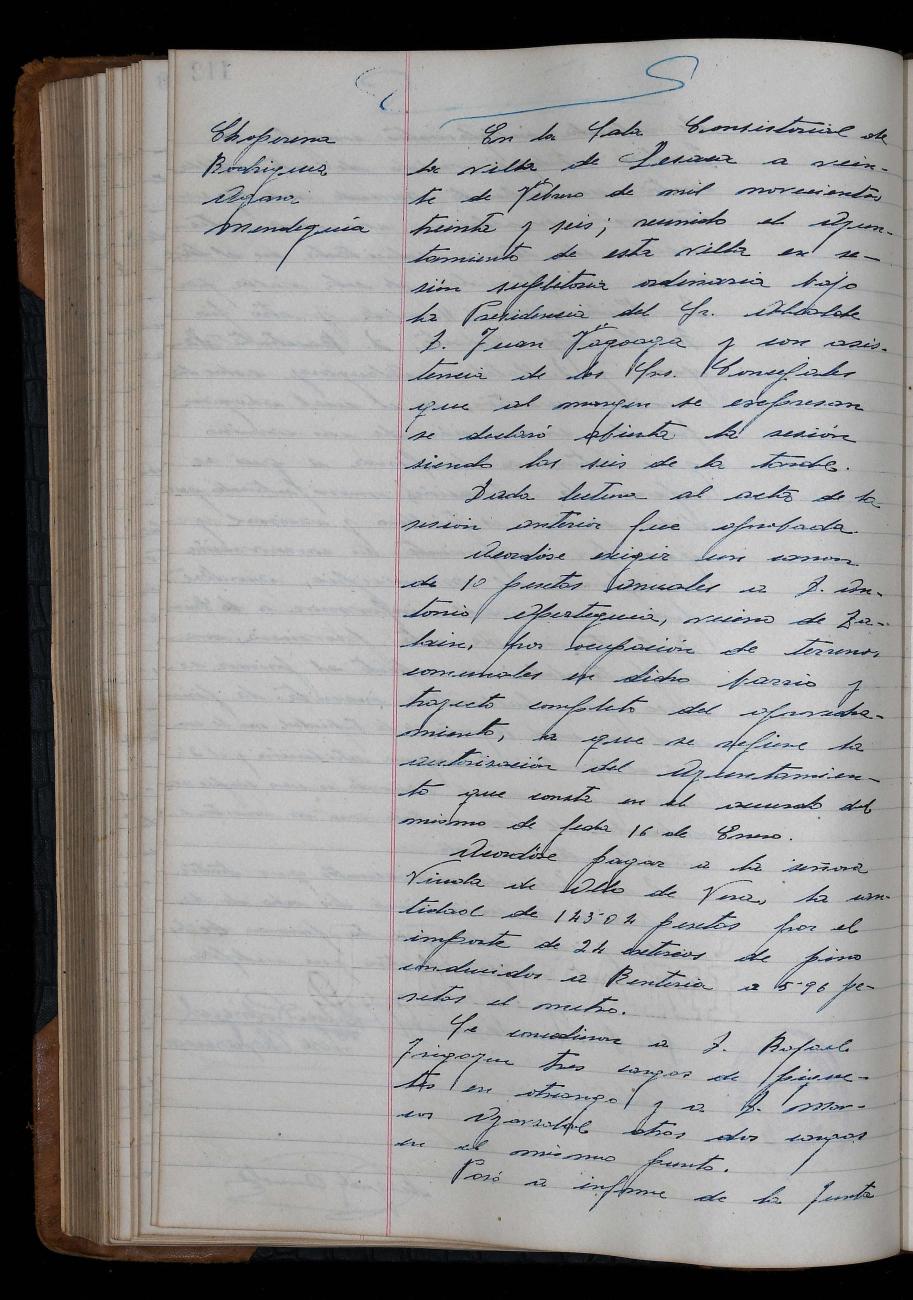 Choperena
Rodriguez
Mendeguía
En la Sala Consistorial de
la villa de Lesaca a vein-
te de Febrero de mil novecientos
treinta y seis; reunido el Ayun-
tamiento de esta villa en se-
sión supletoria ordinaria bajo
la Presidencia del Sr. Alcalde
D. Juan Yagoaga y con asis-
tencia de los Srs. Concejales
que al margen se expresan
se declaró abierta la sesión
siendo las seis de la tarde.
Dada lectura al acta de la
sesion anterior fue aprobada.
Acordóse exigir un canon
de 10 pesetas anuales a D. An-
tonio Apezteguia, vecino de Za-
lain, por ocupación de terrenos
comunales en dicho barrio y
trayecto completo del aprovecha-
miento, a que se refiere la
autorización del Ayuntamien-
to que consta en el acuerdo del
mismo de fecha 16 de Enero.
Acordóse pagar a la señora
Viuda de de Vera, la can-
tidad de 143'04 pesetas por el
importe de 24 estéreos de pino
conducidos a Renteria a 5'96 pe-
setas el metro.
Se concedieron a D. Rafael
tres cargas de
en y a D. Mar-
cos otras dos cargas
en el mismo punto.
Pasó a informe de la Junta